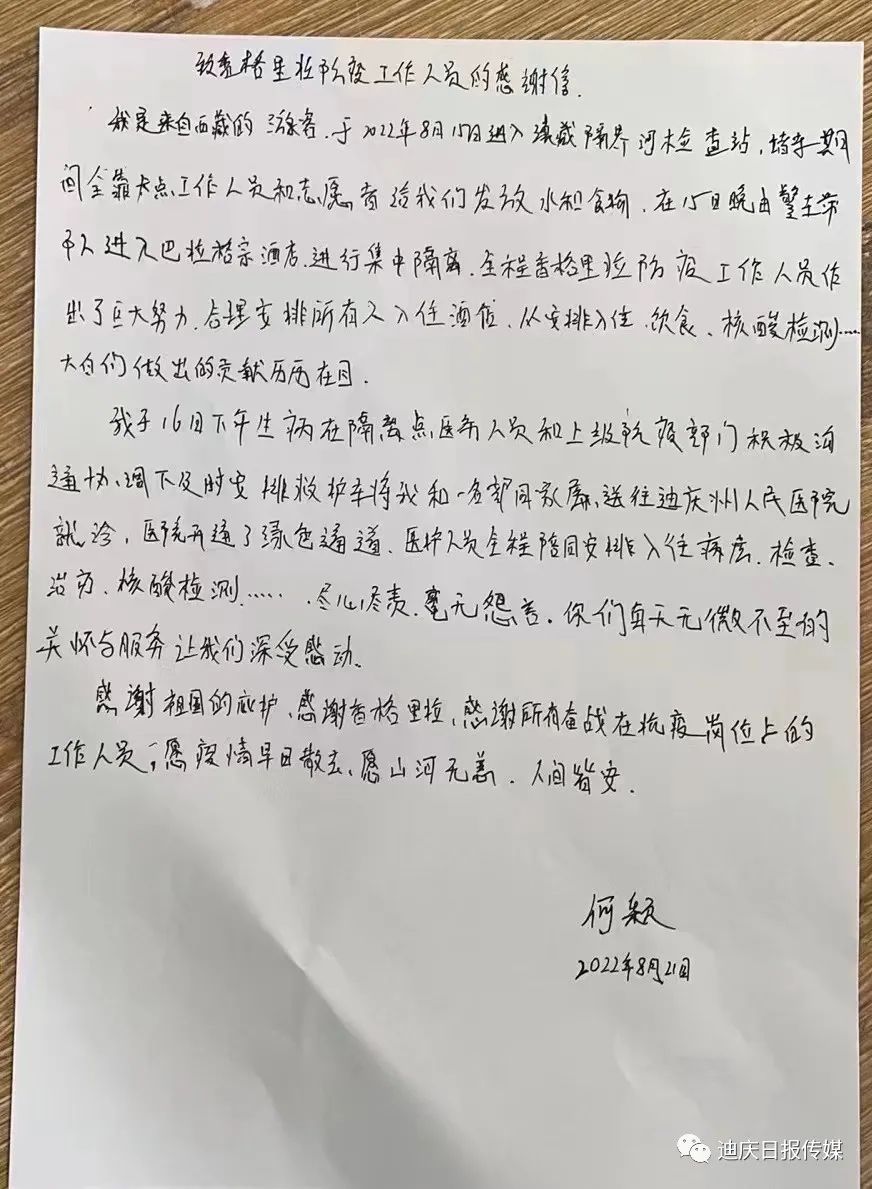 致香格里拉防疫工作人员的感谢信.
我是来自西藏的游客.于2022年8月15日进入滇藏隔界河检查站,堵车期
间全靠卡点工作人员和志愿者给我们发放水和食物.在15日晚由警车带
进入巴拉格宗酒店.进行集中隔离.全程香格里拉防疫工作人员作
出了巨大努力.合理安排所有人入住酒店.从安排入住.饮食、核酸检测……
大白们做出的贡献历历在目.
我于16日下午生病在隔离点医务人员和上级抗疫部门积极沟
通协调下及时安排救护车将我和一名密送往迪庆州人民医院
就诊,医院开通了绿色通道.医护人员全程陪同安排入住病房.检查、
治疗、核酸检测…….尽心尽责.毫无怨言.你们每天无微不至的
关怀与服务让我们深受感动.
感谢祖国的庇护、感谢香格里拉,感谢所有奋战在抗疫岗位上的
工作人员,愿疫情早日散去、愿山河无恙.人间皆安.
何颖
2022年8月21日
迪庆日报传媒